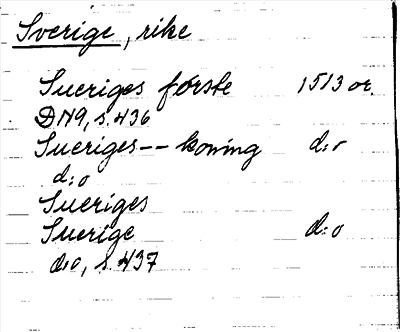 Sverige, rike
Sueriges første 1513 or.
DN9, s. 436
Sueriges -- koning d:o
d:o
Sueriges
Suerige d:o
d:o, s. 437